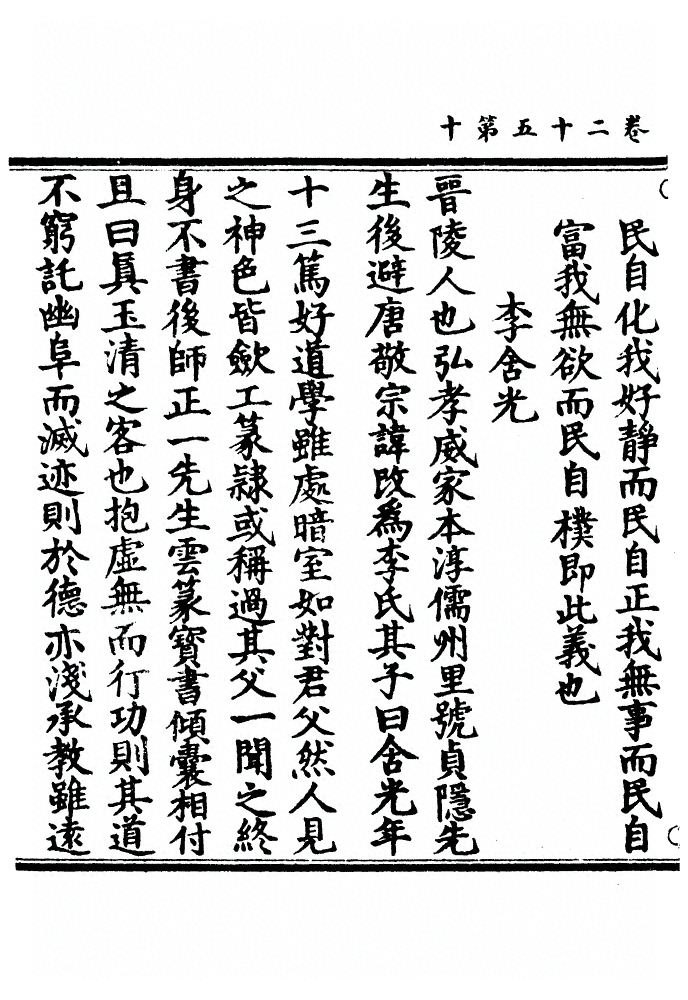 卷二十五第十
民自化我好靜而民自正我無事而民自
富我無欲而民自樸即此義也
李含光
晉陵人也弘孝威家本淳儒州里號貞隱先
生後避唐敬宗諱改爲李氏其子曰含光年
十三篤好道學雖處暗室如對君父然人見
之神色皆歛工篆隷或稱過其父一聞之終
身不書後師正一先生雲篆寶書傾囊相付
且曰眞玉清之客也抱虛無而行功則其道
不窮託幽阜而滅迹則於德亦淺承教雖遠